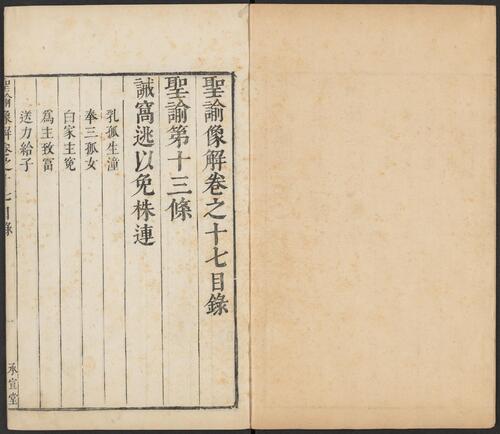 聖諭像解卷之十七目錄
聖諭第十三條
誡窩逃以免株連
乳孤生湩
奉三孤女
白家主寃
爲主致富
送力給子
聖諭像解卷之十七目錄
一
承宣堂